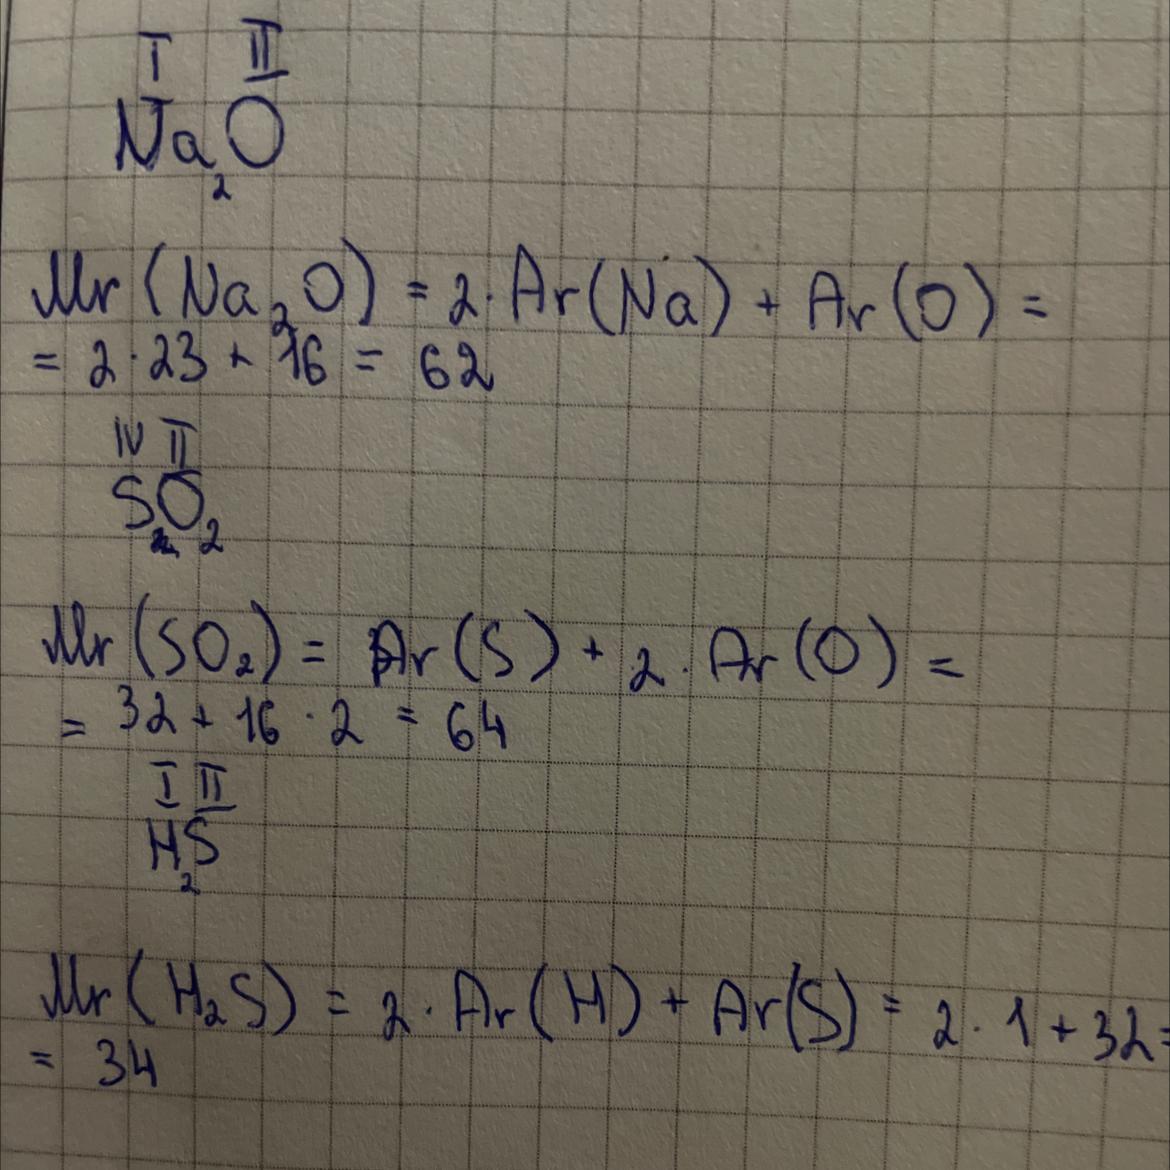 I II
Na₂O
Mr(Na₂O) = 2·Ar(Na) + Ar(O) =
= 2·23 + 16 = 62
IV II
SO₂
Mr(SO₂) = Ar(S) + 2·Ar(O) =
= 32 + 16·2 = 64
I II
H₂S
Mr(H₂S) = 2·Ar(H) + Ar(S) = 2·1 + 32 =
= 34